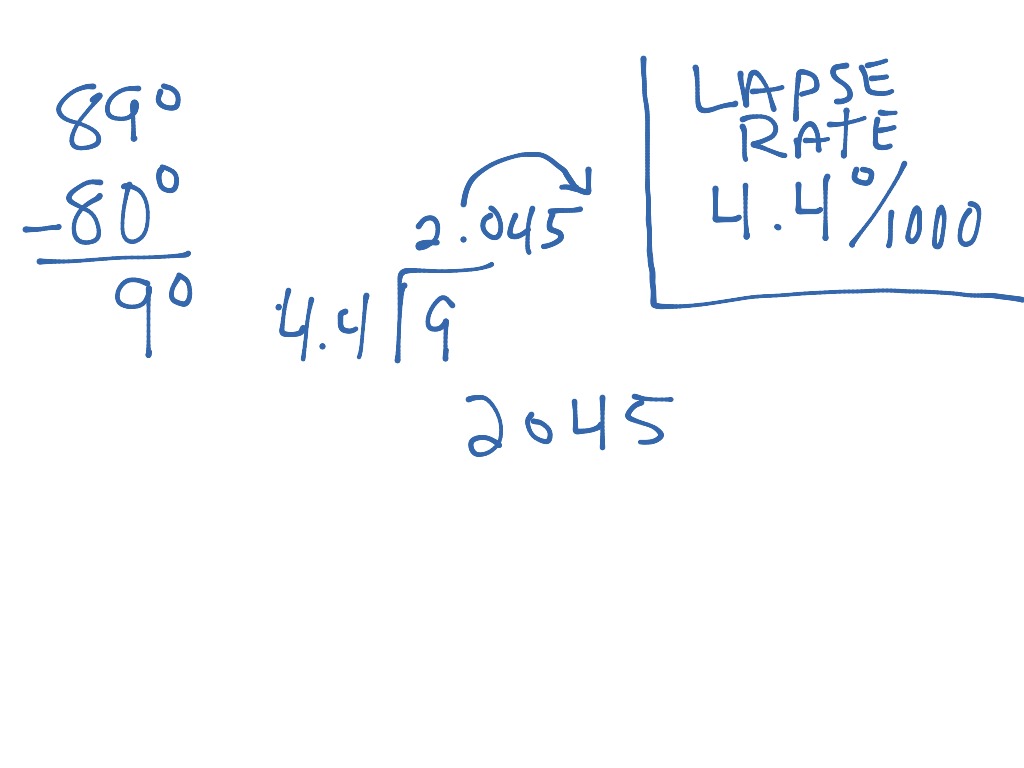 89°
-80°
9°
2.045
4.4 9
2045
LAPSE
RATE
4.4°/1000